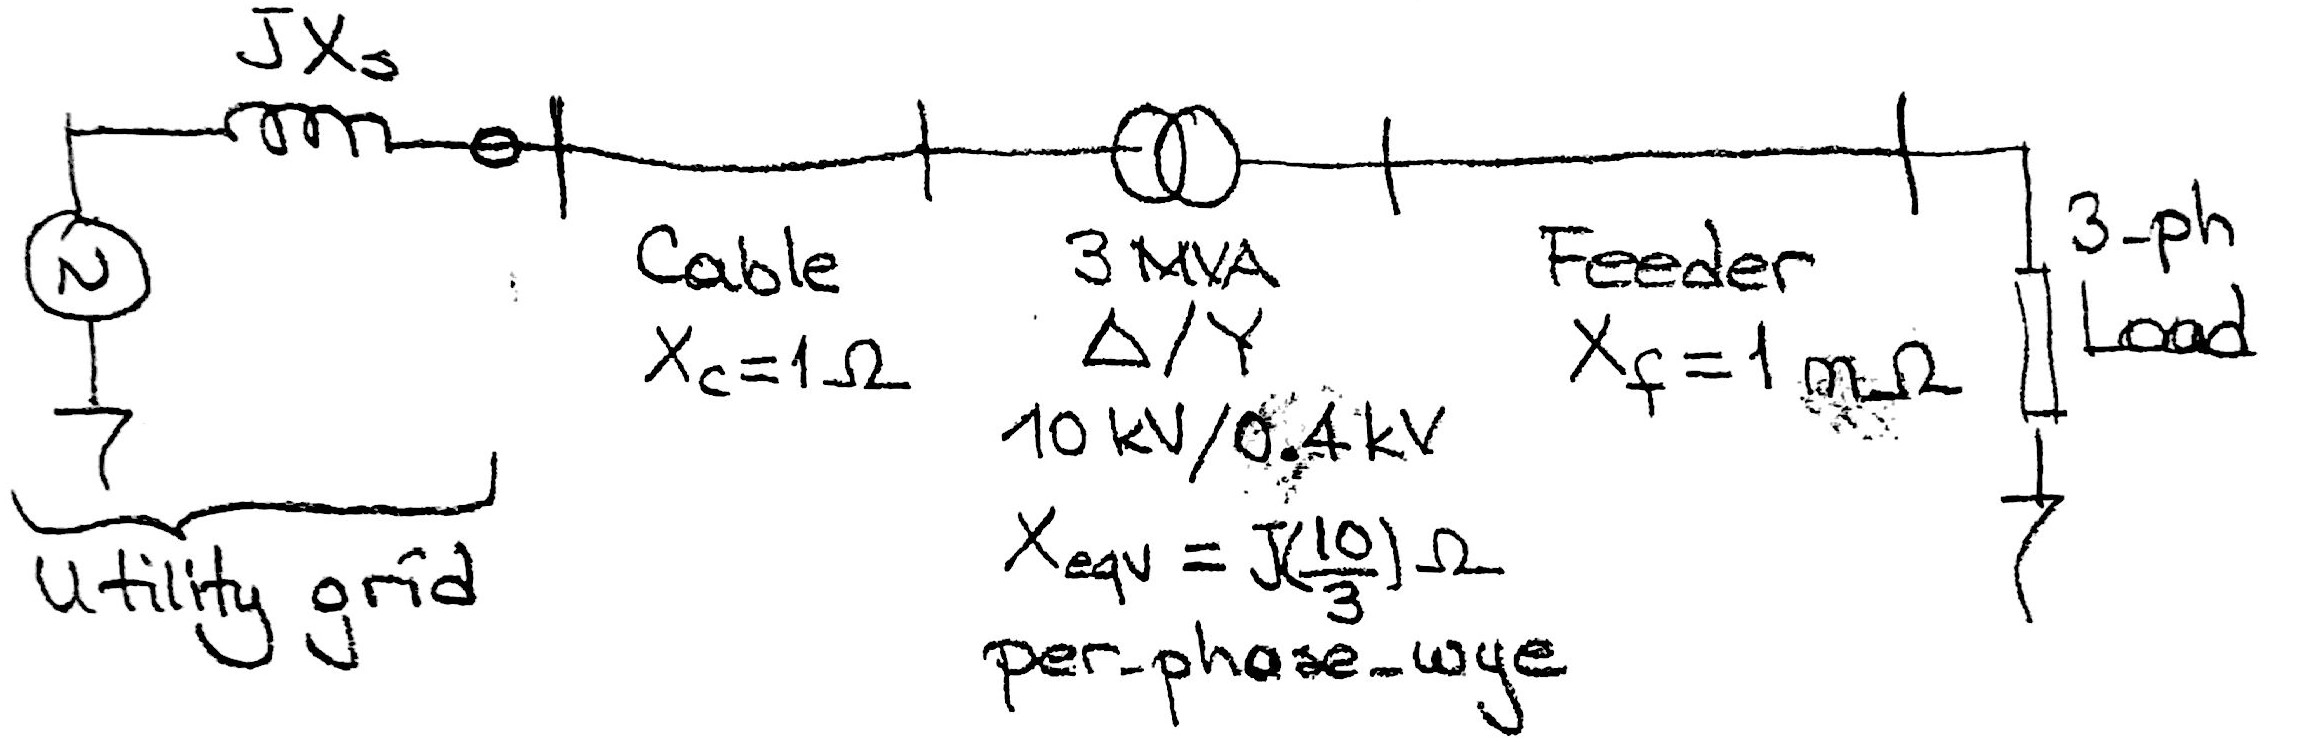 JXs
N
Utility grid
Cable
Xc=1Ω
3 MVA
Δ/Y
10 kV/0.4 kV
Xeqv = J(10/3) Ω
per-phase-wye
Feeder
Xf=1 mΩ
3-ph
Load